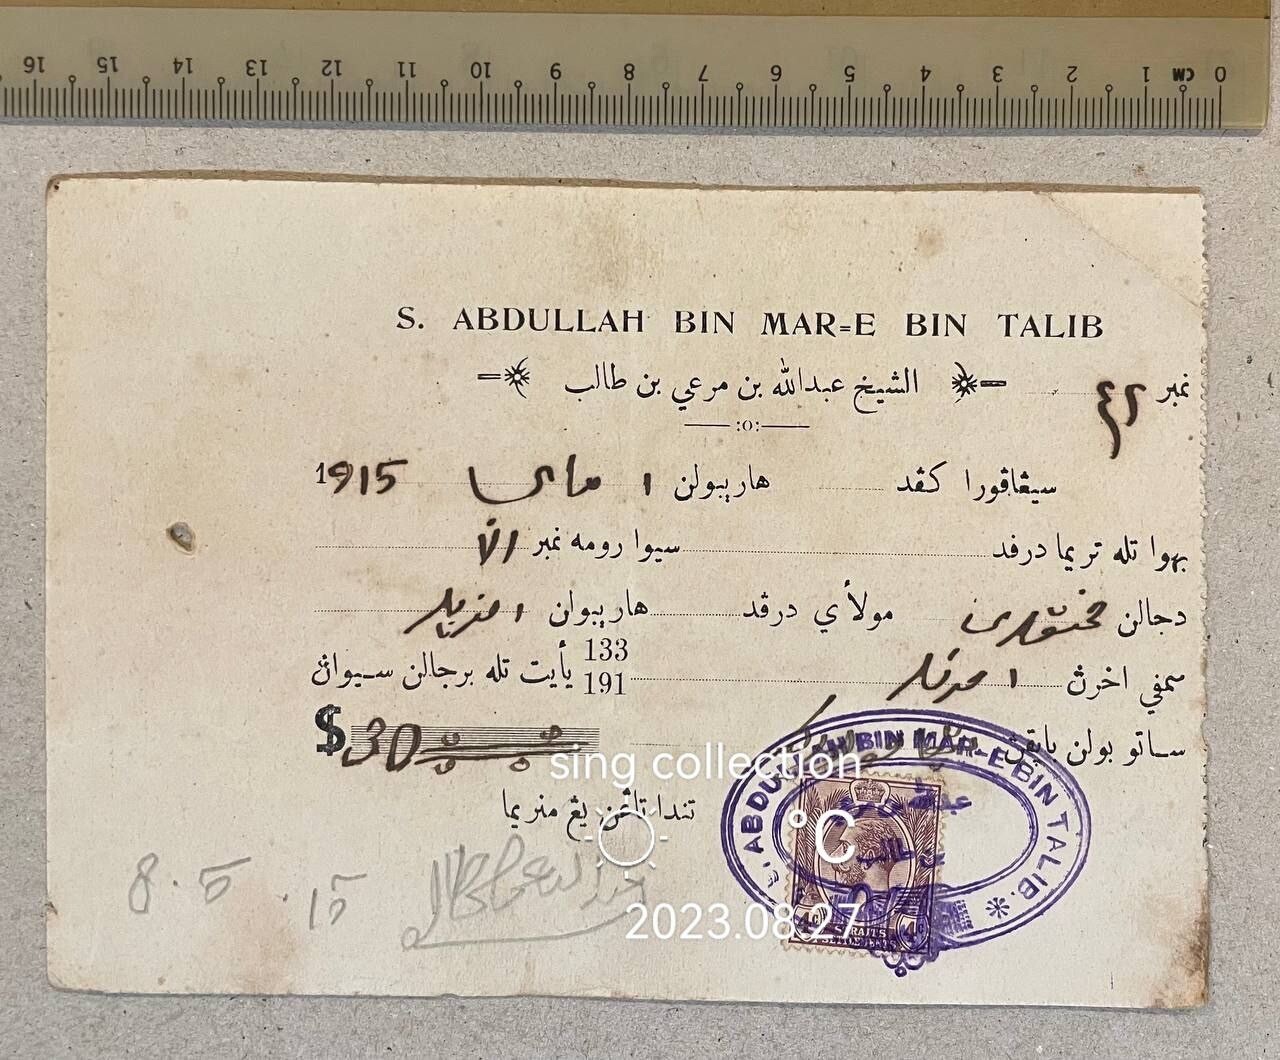 16 15 14 13 12 11 10 9 8 7 6 5 4 3 2 1 CM 0
S. ABDULLAH BIN MAR=E BIN TALIB
الشيخ عبدالله بن مرعي بن طالب
نمبر ٤٢
:o:
سيڠاڤورا كڤد هاريبولن ١ ماي 1915
بهوا تله تريما درفد سيوا رومه نمبر
دجالن مولأي درڤد هاريبولن ١
سمفي اخرڽ ١ 133 191 يأيت تله برجالن سيواڽ
ساتو بولن بايقڽ $30
تندا تاڠن يڠ منريما
8.5.15
ABDULLAH BIN MAR-E BIN TALIB.
عبدالله بن مرعي
بن طالب
4c 4c
STRAITS
SETTLEMENTS
sing collection
°C
2023.08.27